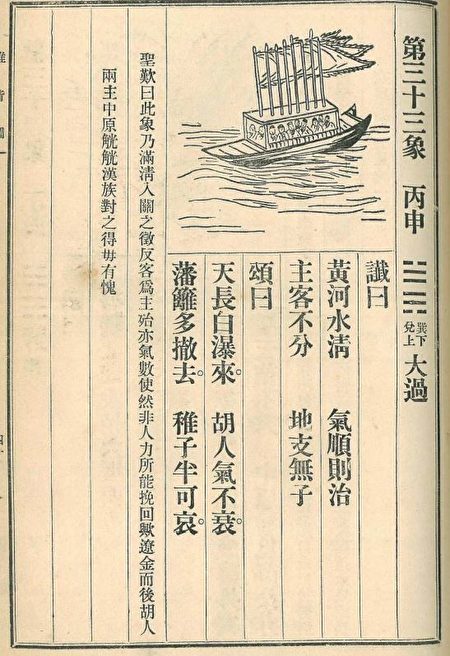 第三十三象 丙申 巽下兌上 大過
讖曰
黃河水清 氣順則治
主客不分 地支無子
頌曰
天長白瀑來。胡人氣不衰。
藩籬多撤去。稚子半可哀。
聖歎曰此象乃滿清入關之徵反客為主殆亦氣數使然非人力所能挽回歟遼金而後胡人
兩主中原觥觥漢族對之得毋有愧